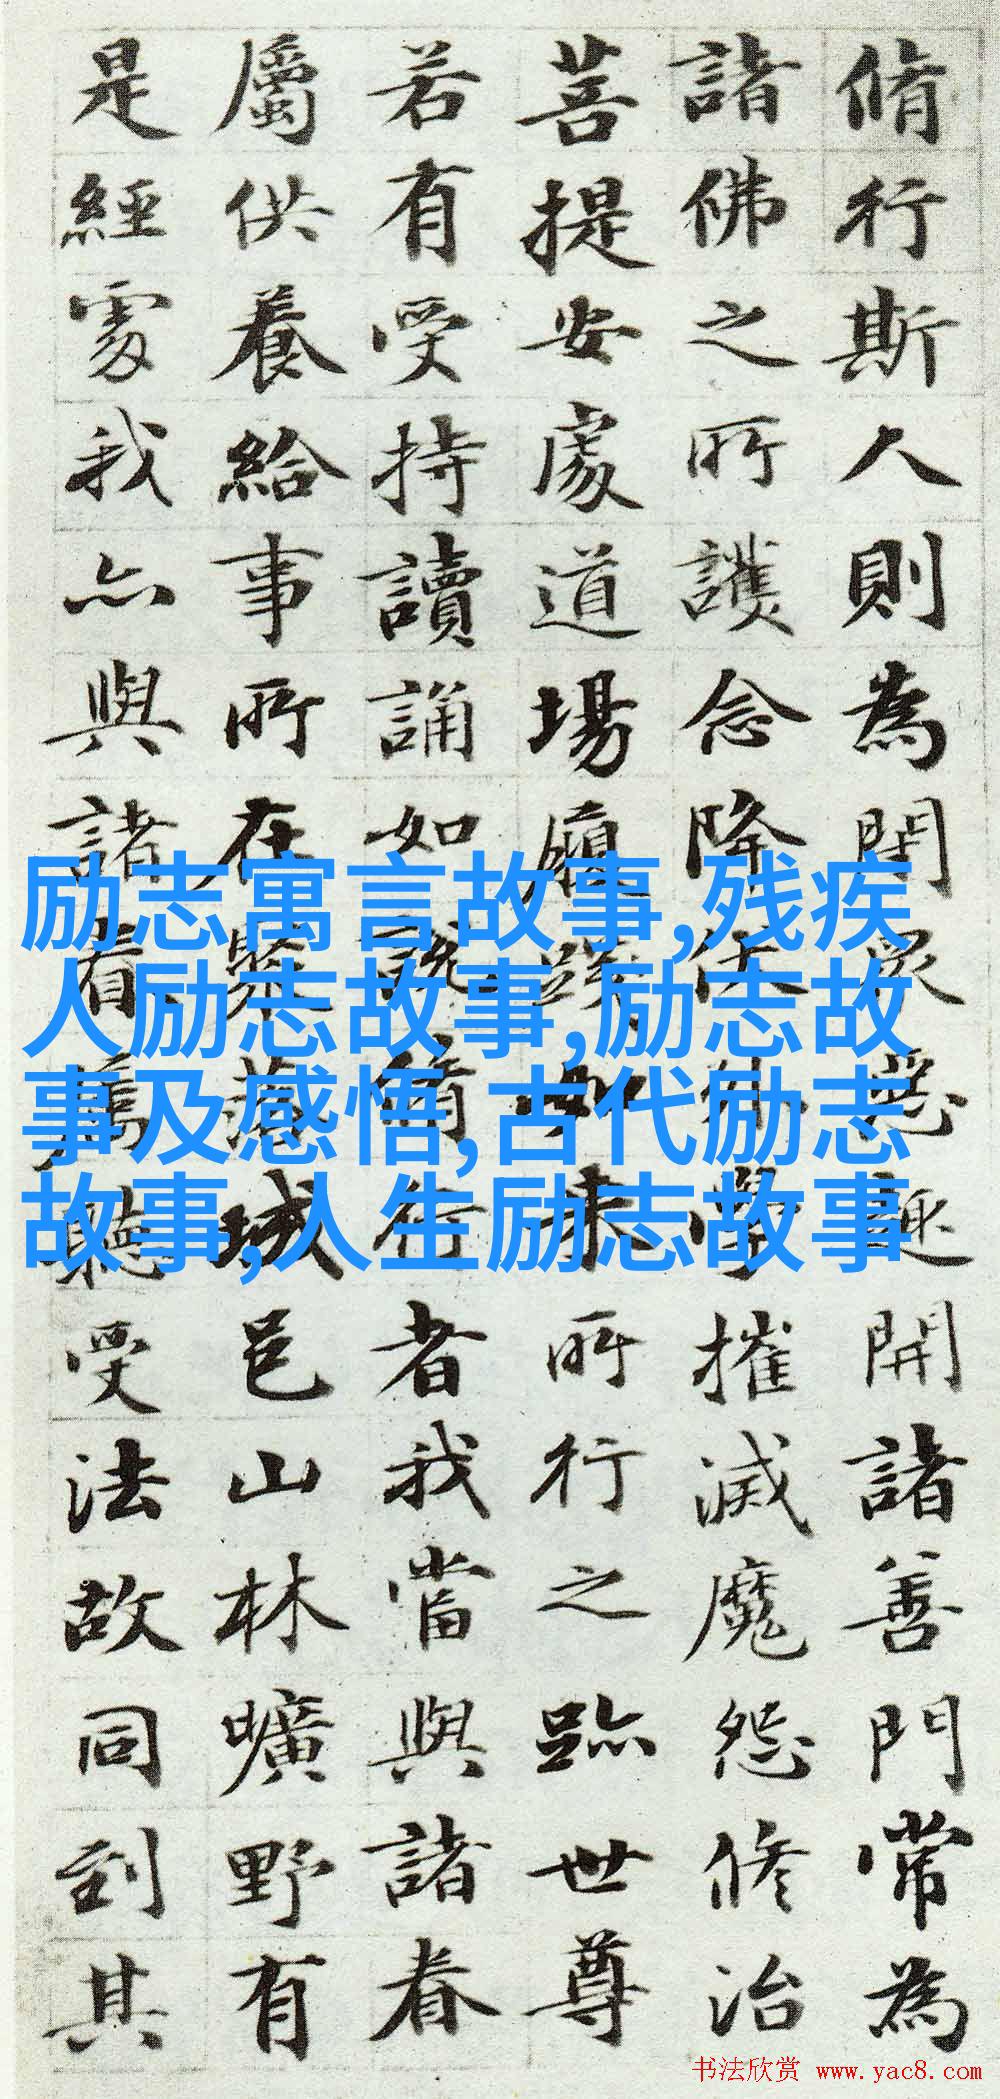 脩行斯人則為閇眾惡趣開諸善門常為
諸佛之所護念降伏外學摧滅魔怨修治
菩提安處道場履踐如來所行之跡世尊
若有受持讀誦如說脩行者我當與諸眷
屬供養給事所在聚落城邑山林曠野有
是經處我亦與諸眷屬聽受法故同到其
励志寓言故事,残疾
人励志故事,励志故
事及感悟,古代励志
故事,人生励志故事
书法欣赏 www.yac8.com